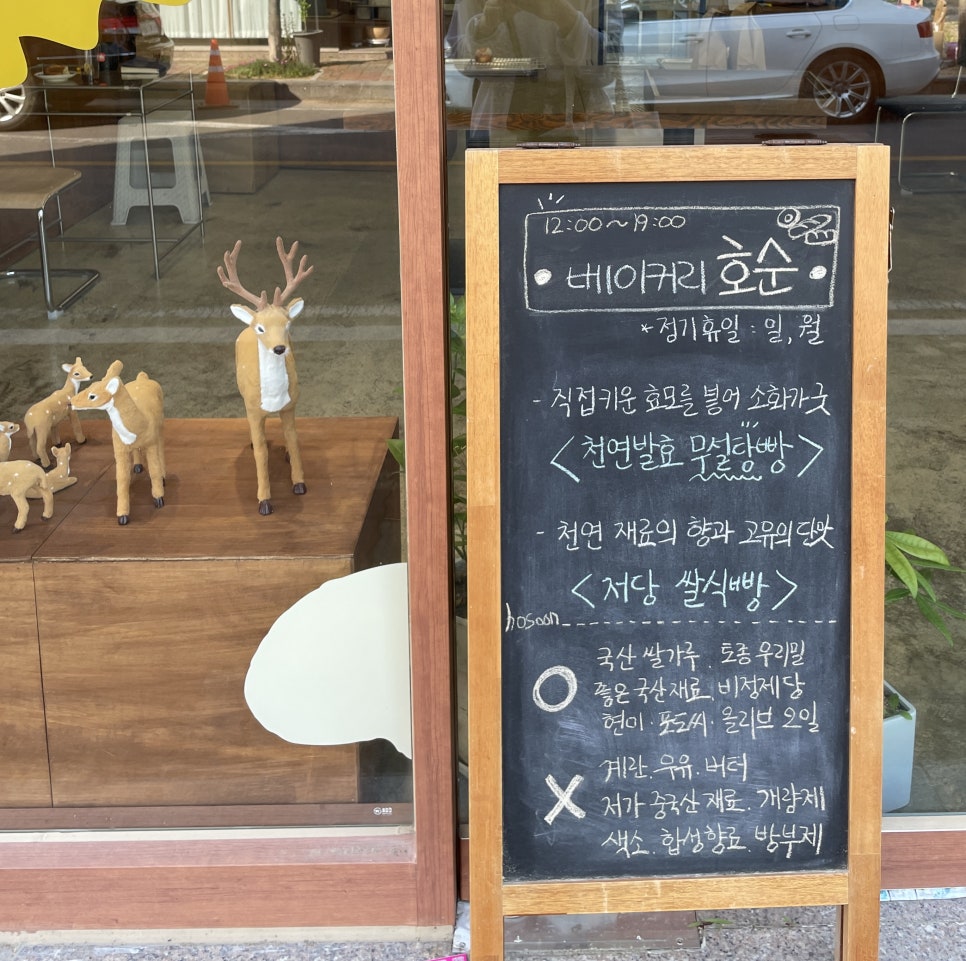 12:00~19:00
베이커리 호순
*정기휴일 : 일, 월
- 직접키운 효모를 넣어 소화가굿
<천연발효 무설탕빵>
- 천연 재료의 향과 고유의 단맛
<저당 쌀식빵>
hosoon
O 국산 쌀가루. 토종 우리밀
좋은 국산재료. 비정제당
현미·포도씨·올리브 오일
X 계란. 우유. 버터
저가 중국산 재료. 개량제
색소. 합성향료. 방부제